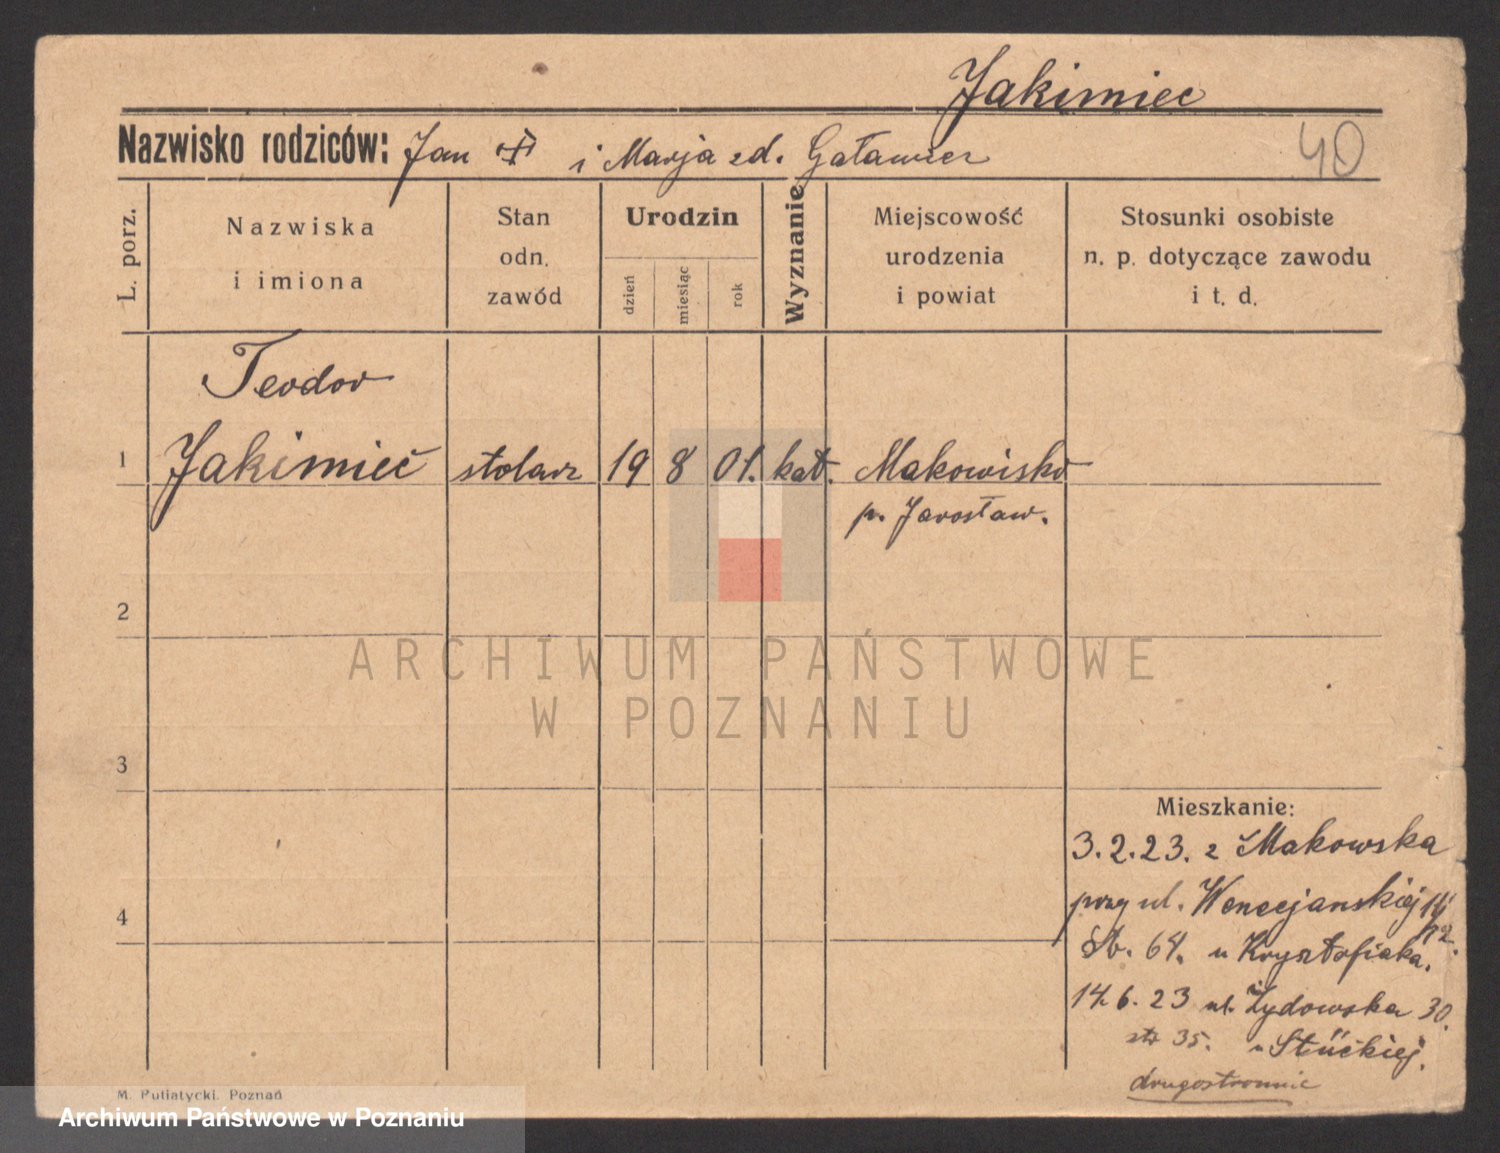 Jakimiec
40
Nazwisko rodziców: Jan i Marja zd. Gaławier
L. porz.
Nazwiska
i imiona
Stan
odn.
zawód
Urodzin
dzień
miesiąc
rok
Wyznanie
Miejscowość
urodzenia
i powiat
Stosunki osobiste
n. p. dotyczące zawodu
i t. d.
Teodor
1 Jakimieć stolarz 19 8 01. kat. Makowisko
p. Jarosław.
2
ARCHIWUM PAŃSTWOWE
W POZNANIU
3
Mieszkanie:
3.2.23. z Makowska
przy ul. Wenecjańskiej
4
64. u Krysztofiaka.
14.6.23 ul. Żydowska 30.
str 35.
drugostronnie
M. Putiatycki. Poznań
Archiwum Państwowe w Poznaniu